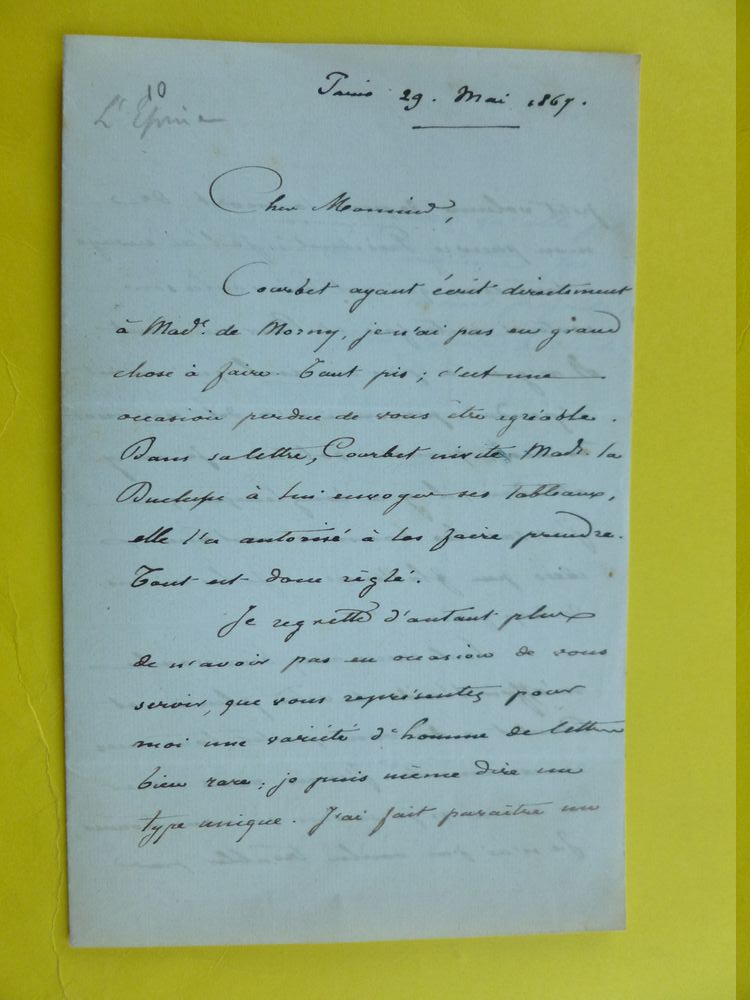 10
L'Epine
Paris 29. Mai 1867.
Cher Monsieur,
Courbet ayant écrit directement
à Made. de Morny, je n'ai pas eu grand
chose à faire. Tant pis ; c'est une
occasion perdue de vous être agréable.
Dans sa lettre, Courbet invite Made. la
Duchesse à lui envoyer ses tableaux,
elle l'a autorisé à les faire prendre.
Tout est donc réglé.
Je regrette d'autant plus
de n'avoir pas eu occasion de vous
servir, que vous représentez pour
moi une variété d'homme de lettres
bien rare ; je puis même dire un
type unique. J'ai fait paraître un